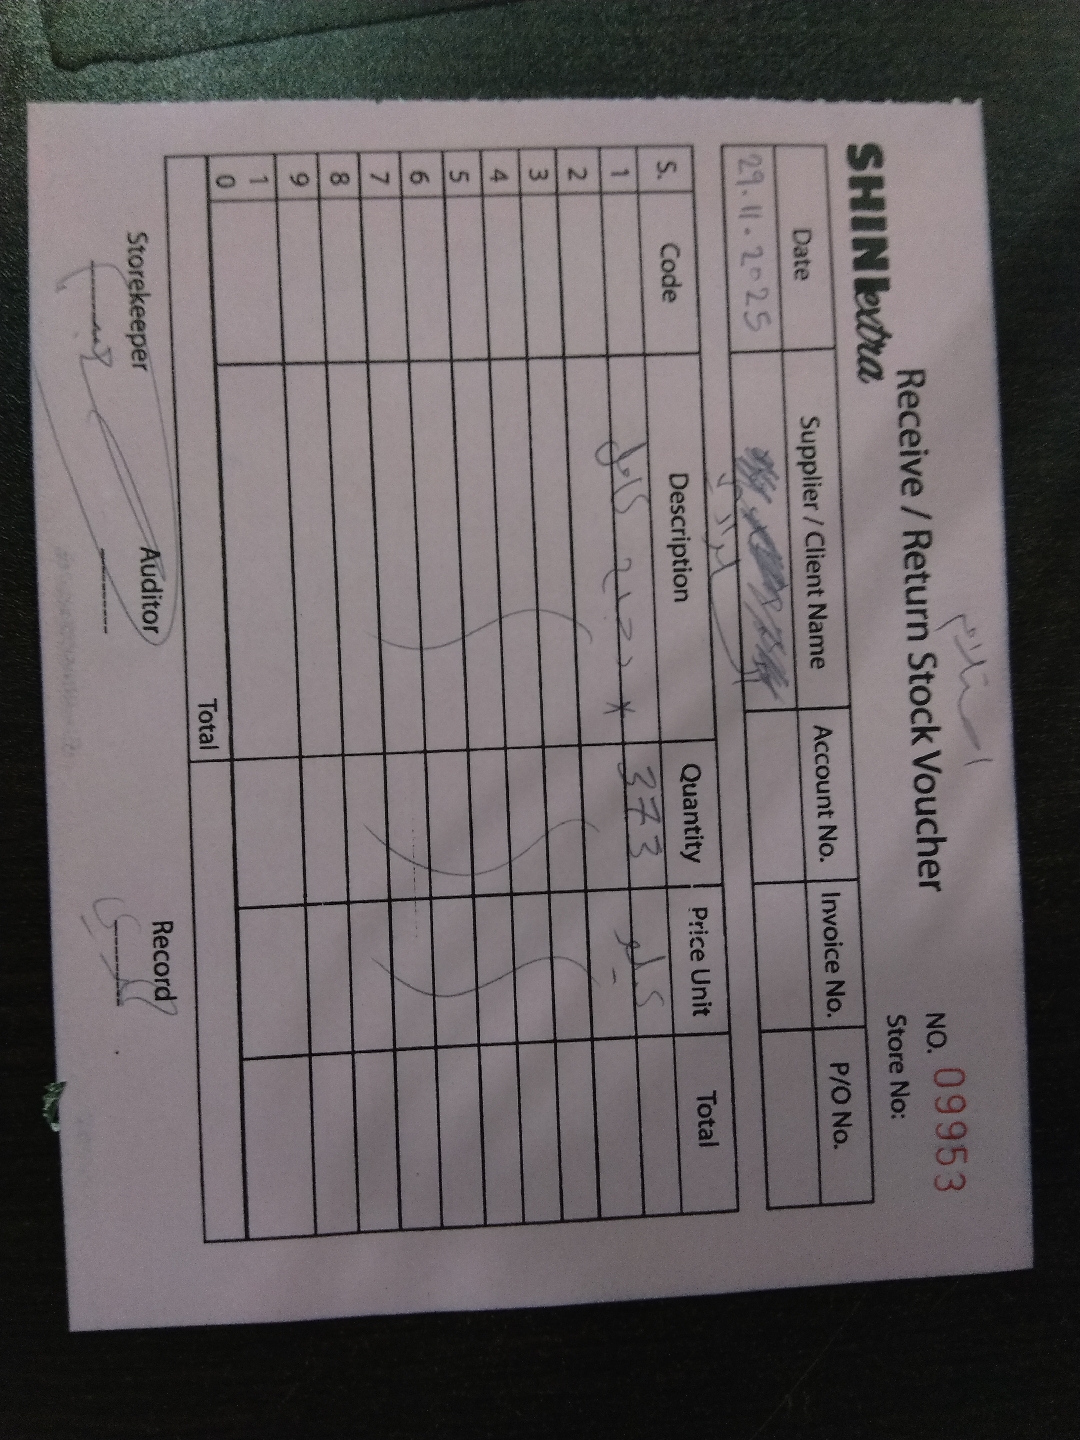 SHINIextra
Receive / Return Stock Voucher
NO. 09953
Store No:
Date Supplier / Client Name Account No. Invoice No. P/O No.
29.11.2025
S. Code Description Quantity Price Unit Total
1 373
2
3
4
5
6
7
8
9
1
0
Total
Storekeeper Auditor Record